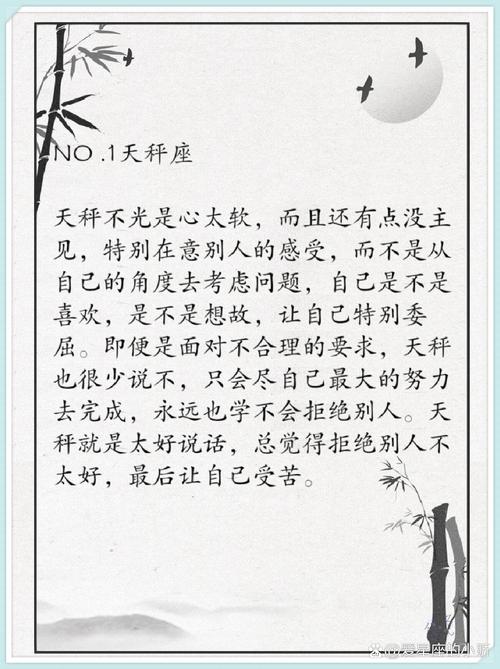 NO .1天秤座
天秤不光是心太软，而且还有点没主
见，特别在意别人的感受，而不是从
自己的角度去考虑问题，自己是不是
喜欢，是不是想故，让自己特别委
屈。即便是面对不合理的要求，天秤
也很少说不，只会尽自己最大的努力
去完成，永远也学不会拒绝别人。天
秤就是太好说话，总觉得拒绝别人不
太好，最后让自己受苦。
爱星座的小骄